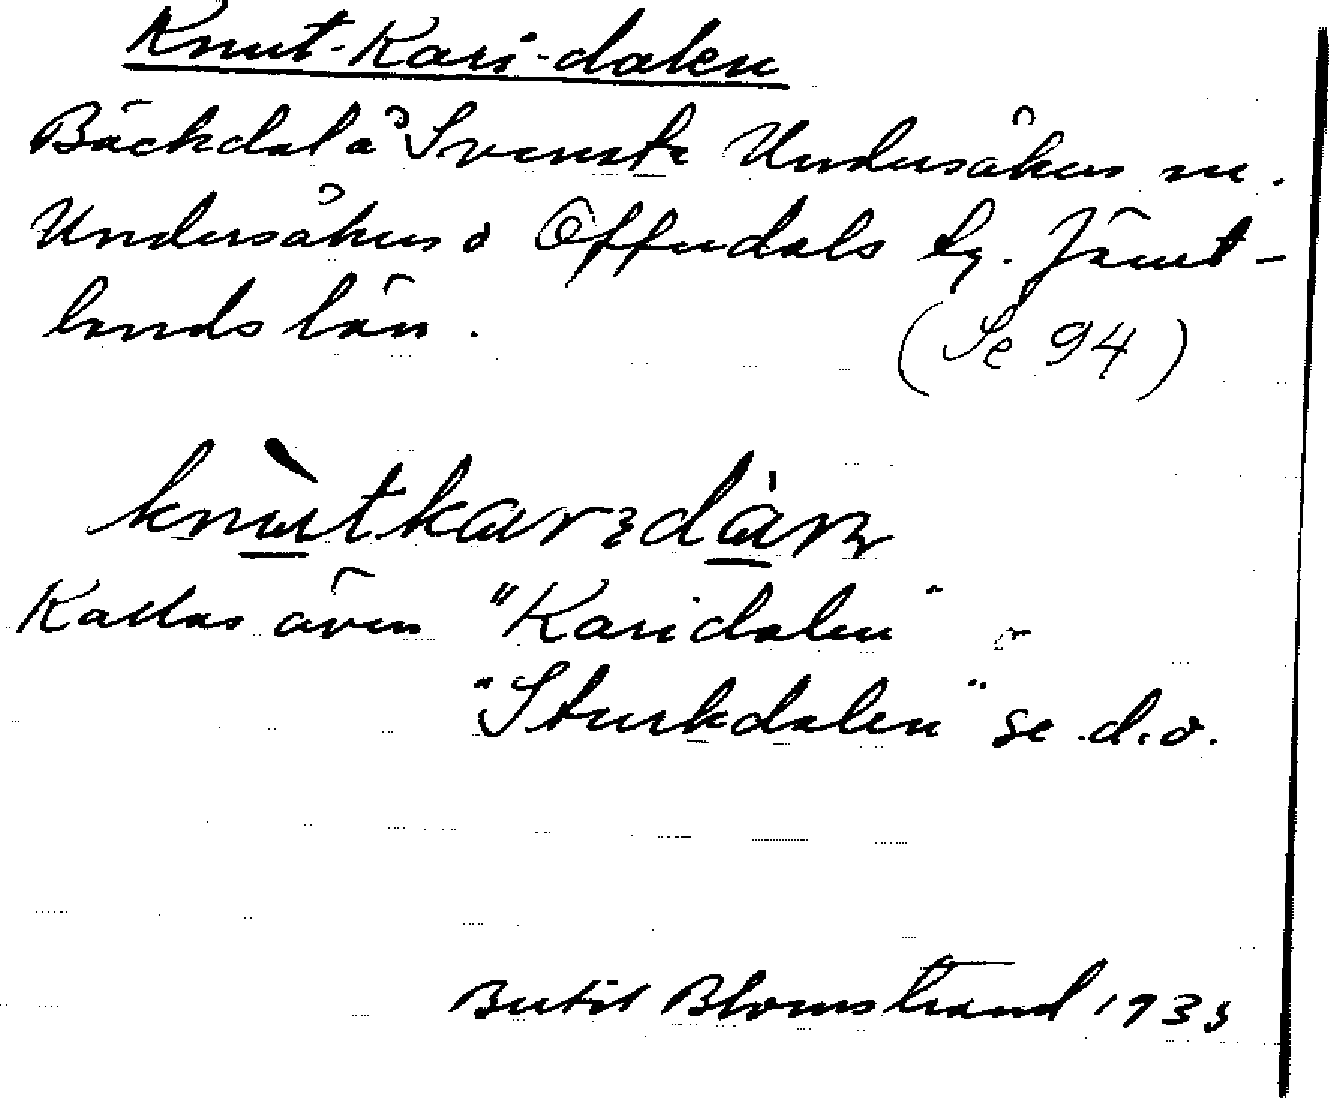 Knut-Kari-dalen
Bäckdal å Svensk Undersåkers sn.
Undersåkers o Offerdals tg. Jämt-
lands län.
(Se 94)
Kallas även "Karidalen" o
"Sturkdalen" se d.o.
Bertil Blomstrand 193